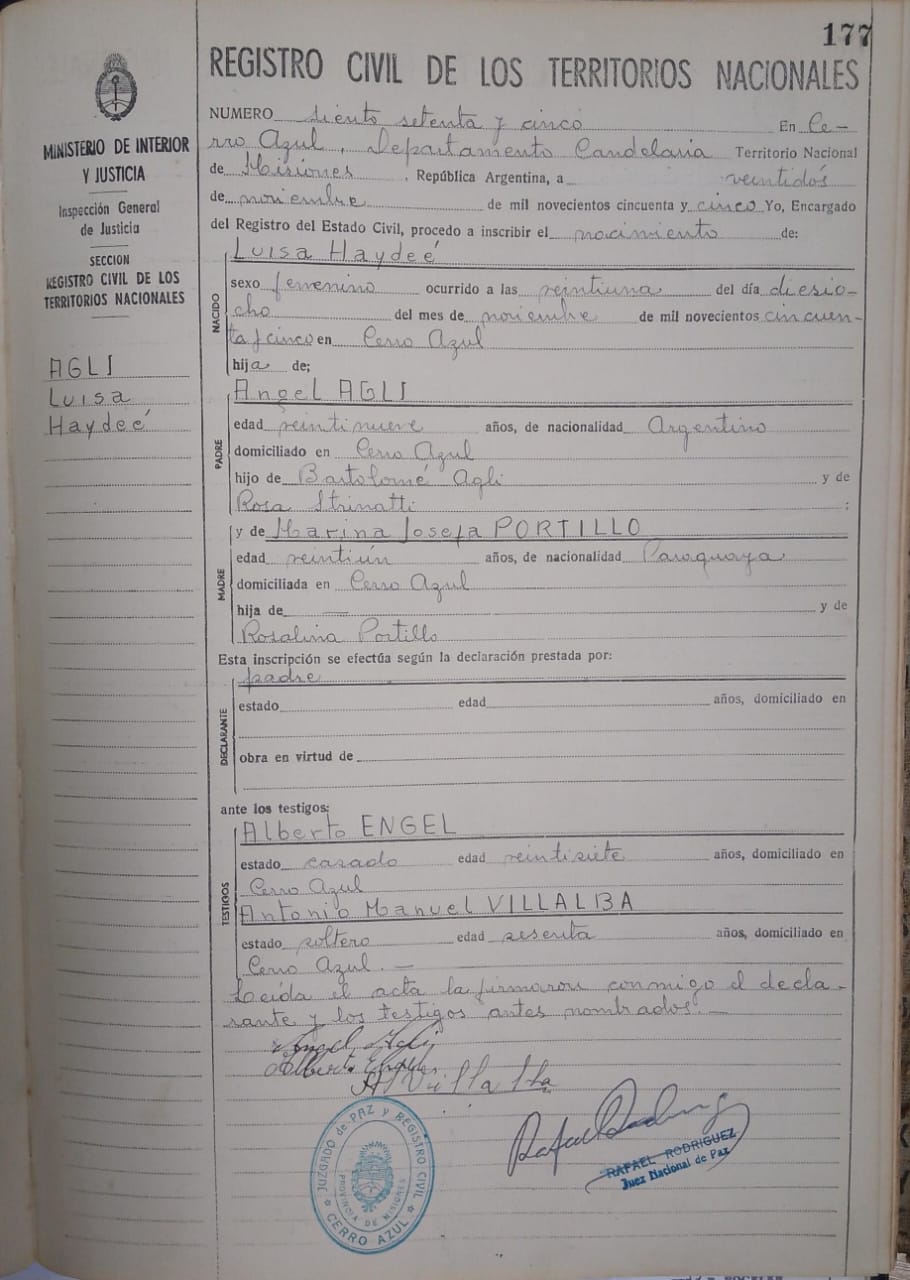 177
REGISTRO CIVIL DE LOS TERRITORIOS NACIONALES
MINISTERIO DE INTERIOR
Y JUSTICIA
Inspección General
de Justicia
SECCION
REGISTRO CIVIL DE LOS
TERRITORIOS NACIONALES
AGLI
Luisa
Haydeé
NUMERO ciento setenta y cinco En Ce-
rro Azul, Departamento Candelaria Territorio Nacional
de Misiones, República Argentina, a veintidós
de noviembre de mil novecientos cincuenta y cinco Yo, Encargado
del Registro del Estado Civil, procedo a inscribir el nacimiento de:
NACIDO
Luisa Haydeé
sexo femenino ocurrido a las veintiuna del día diesio-
cho del mes de noviembre de mil novecientos cincuen-
ta y cinco en Cerro Azul
hija de;
PADRE
Angel AGLI
edad veintinueve años, de nacionalidad Argentino
domiciliado en Cerro Azul
hijo de Bartolomé Agli y de
Rosa Strinatti :
MADRE
y de Marina Josefa PORTILLO
edad veintiún años, de nacionalidad Paraguaya
domiciliada en Cerro Azul
hija de y de
Rosalina Portillo
Esta inscripción se efectúa según la declaración prestada por:
DECLARANTE
padre
estado edad años, domiciliado en
obra en virtud de
ante los testigos:
TESTIGOS
Alberto ENGEL
estado casado edad veintisiete años, domiciliado en
Cerro Azul
Antonio Manuel VILLALBA
estado soltero edad sesenta años, domiciliado en
Cerro Azul. —
Leída el acta la firmaron conmigo el decla-
rante y los testigos antes nombrados. —
Angel Agli
Alberto Engel
A Villalba
Rafael Rodriguez
RAFAEL RODRIGUEZ
Juez Nacional de Paz
JUZGADO de PAZ y REGISTRO CIVIL
PROVINCIA DE MISIONES
★ CERRO AZUL ★